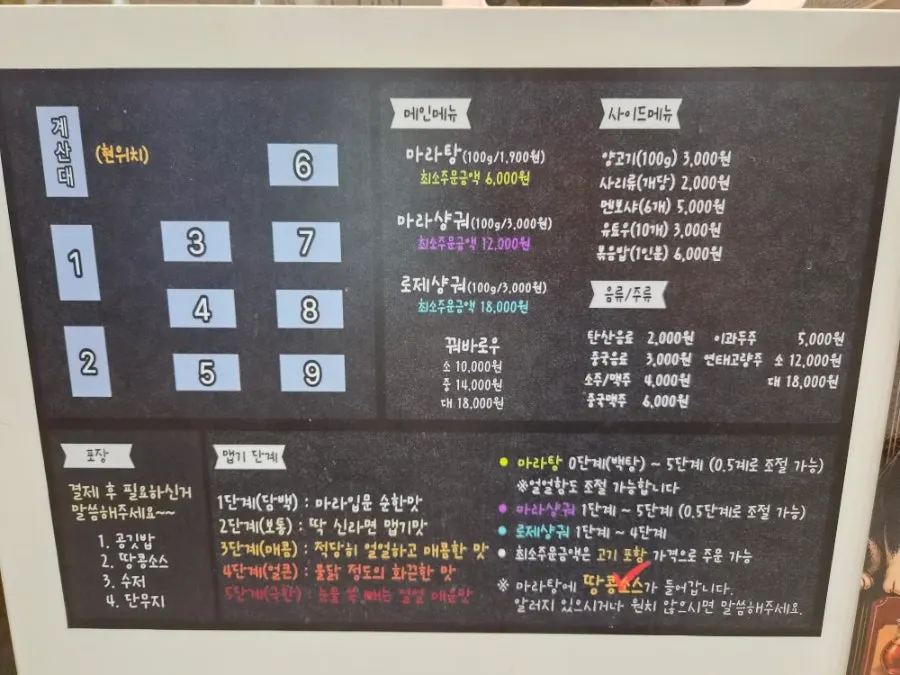 계산대
(현위치)
6
1
3
7
4
8
2
5
9
메인메뉴
마라탕(100g/1,900원)
최소주문금액 6,000원
마라샹궈(100g/3,000원)
최소주문금액 12,000원
로제샹궈(100g/3,000원)
최소주문금액 18,000원
꿔바로우
소 10,000원
중 14,000원
대 18,000원
사이드메뉴
양고기(100g) 3,000원
사리류(개당) 2,000원
멘보샤(6개) 5,000원
유토우(10개) 3,000원
볶음밥(1인분) 6,000원
음류/주류
탄산음료 2,000원
중국음료 3,000원
소주/맥주 4,000원
중국맥주 6,000원
이과두주 5,000원
연태고량주 소 12,000원
대 18,000원
포장
결제 후 필요하신거
말씀해주세요~~
1. 공깃밥
2. 땅콩소스
3. 수저
4. 단무지
맵기 단계
1단계(담백) : 마라입문 순한맛
2단계(보통) : 딱 신라면 맵기맛
3단계(매콤) : 적당히 얼얼하고 매콤한 맛
4단계(얼큰) : 불닭 정도의 화끈한 맛
5단계(극한) : 눈물 쏙 빼는 얼얼 매운맛
● 마라탕 0단계(백탕) ~ 5단계 (0.5계로 조절 가능)
※얼얼함도 조절 가능합니다
● 마라샹궈 1단계 ~ 5단계 (0.5단계로 조절 가능)
● 로제샹궈 1단계 ~ 4단계
● 최소주문금액은 고기 포함 가격으로 주문 가능
※ 마라탕에 땅콩소스가 들어갑니다.
알러지 있으시거나 원치 않으시면 말씀해주세요.